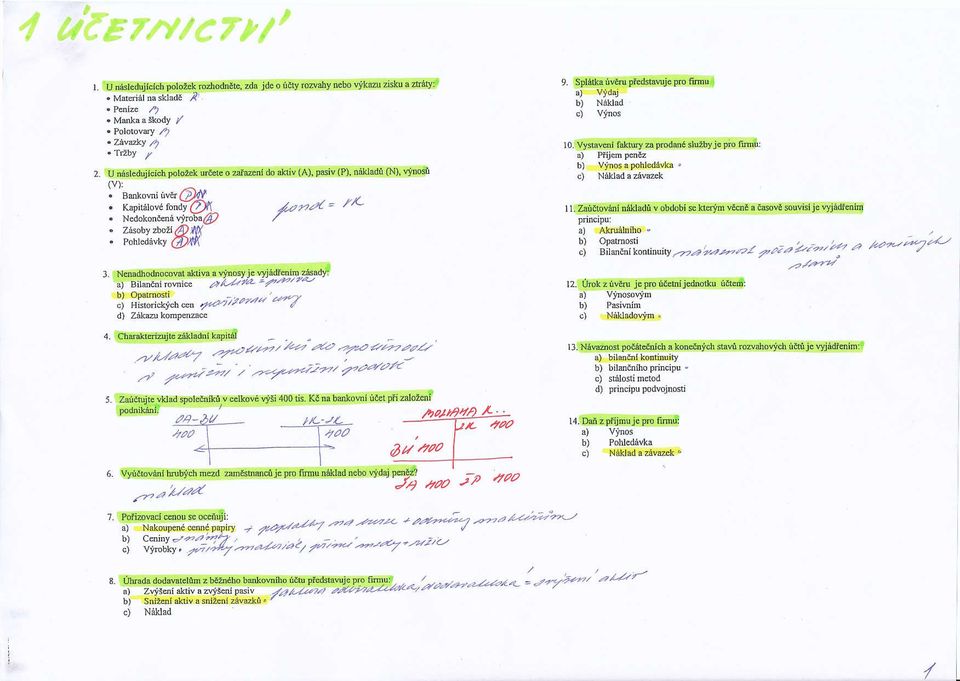 1 ÚČETNICTVÍ
1. U následujících položek rozhodněte, zda jde o účty rozvahy nebo výkazu zisku a ztráty:
• Materiál na skladě R
• Peníze
• Manka a škody V
• Polotovary
• Závazky
• Tržby V
2. U následujících položek určete o zařazení do aktiv (A), pasiv (P), nákladů (N), výnosů
(V):
• Bankovní úvěr P
• Kapitálové fondy P
• Nedokončená výroba A
• Zásoby zboží A
• Pohledávky A
fond = VK
3. Nenadhodnocovat aktiva a výnosy je vyjádřením zásady:
a) Bilanční rovnice aktiva = pasiva
b) Opatrnosti
c) Historických cen pořizovací ceny
d) Zákazu kompenzace
4. Charakterizujte základní kapitál
vklady společníků do společnosti
v peněžní i nepeněžní podobě
5. Zaúčtujte vklad společníků v celkové výši 400 tis. Kč na bankovní účet při založení
podnikání.
OA-BÚ VK-ZK
400 400
ROZVAHA K..
ZK 400
BÚ 400
ΣA 400 ΣP 400
6. Vyúčtování hrubých mezd zaměstnanců je pro firmu náklad nebo výdaj peněz?
náklad
7. Pořizovací cenou se oceňují:
a) Nakoupené cenné papíry + poplatky na burze + odměny makléřům
b) Ceniny známky,
c) Výrobky • přímý materiál, přímé mzdy + režie
8. Úhrada dodavatelům z běžného bankovního účtu představuje pro firmu:
a) Zvýšení aktiv a zvýšení pasiv faktura odběratelská, dodavatelská = zvýšení aktiv
b) Snížení aktiv a snížení závazků
c) Náklad
9. Splátka úvěru představuje pro firmu
a) Výdaj
b) Náklad
c) Výnos
10. Vystavení faktury za prodané služby je pro firmu:
a) Příjem peněz
b) Výnos a pohledávka
c) Náklad a závazek
11. Zaúčtování nákladů v období se kterým věcně a časově souvisí je vyjádřením
principu:
a) Akruálního
b) Opatrnosti
c) Bilanční kontinuity návaznost počátečních a konečných
stavů
12. Úrok z úvěru je pro účetní jednotku účtem:
a) Výnosovým
b) Pasivním
c) Nákladovým
13. Návaznost počátečních a konečných stavů rozvahových účtů je vyjádřením:
a) bilanční kontinuity
b) bilančního principu
c) stálosti metod
d) principu podvojnosti
14. Daň z příjmu je pro firmu:
a) Výnos
b) Pohledávka
c) Náklad a závazek
1